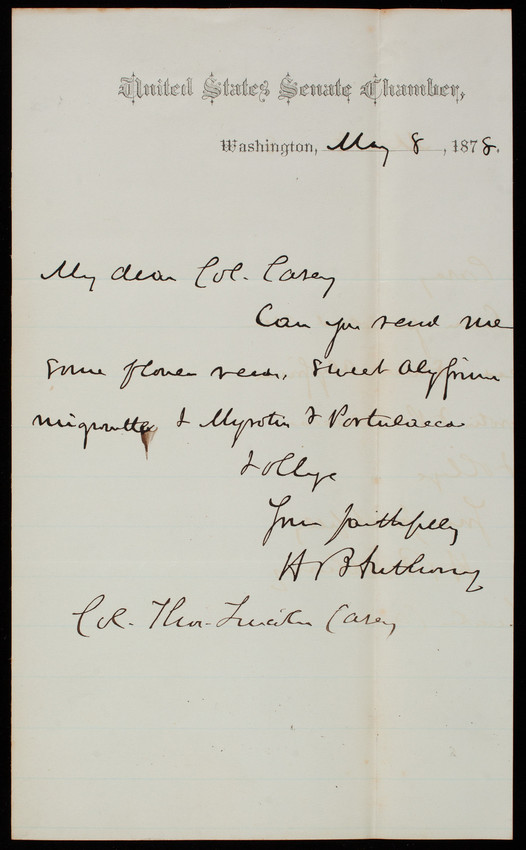 United States Senate Chamber,
Washington, May 8, 1878.
My dear Col. Casey
Can you send me
some flower seeds, sweet alyssum
mignonette & Myosotis & Portulacca
& oblige
Yours faithfully
H B Anthony
Col. Thos. Lincoln Casey